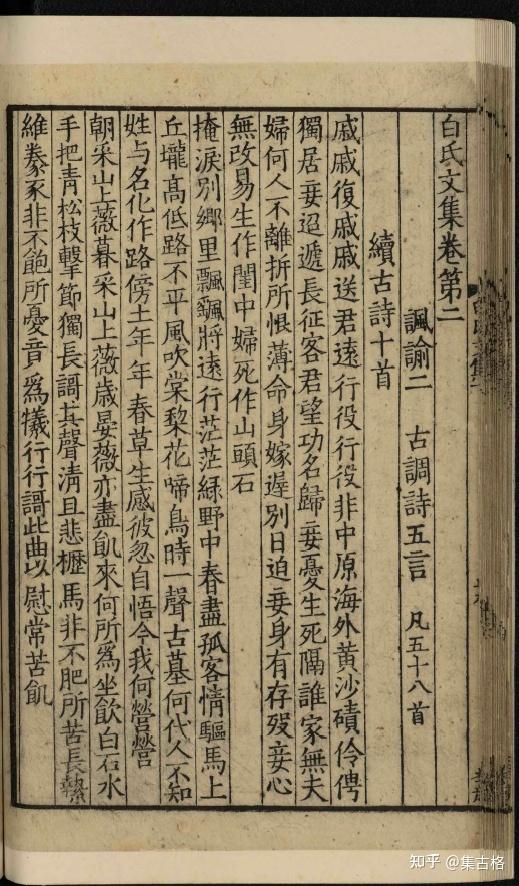 白氏文集卷第二
諷諭二　古調詩五言　凡五十八首
續古詩十首
戚戚復戚戚送君遠行役行役非中原海外黄沙磧伶俜
獨居妾迢遞長征客君望功名歸妾憂生死隔誰家無夫
婦何人不離拆所恨薄命身嫁遲別日迫妾身有存歿妾心
無改易生作閨中婦死作山頭石
掩淚別鄉里飄飖將遠行茫茫緑野中春盡孤客情驅馬上
丘壠高低路不平風吹棠梨花啼鳥時一聲古墓何代人不知
姓与名化作路傍土年年春草生感彼忽自悟今我何營營
朝采山上薇暮采山上薇歳晏薇亦盡飢來何所為坐飲白石水
手把青松枝擊節獨長謌其聲清且悲櫪馬非不肥所苦長縶
維豢豕非不飽所憂竟為犧行行謌此曲以慰常苦飢
知乎 @集古格